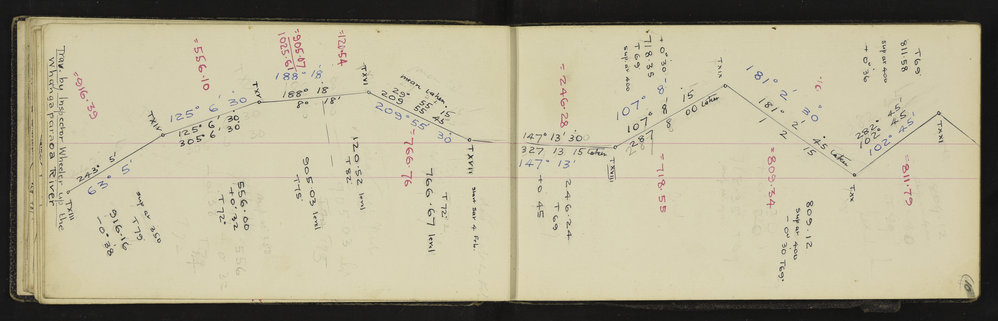 Trav. by Inspector Wheeler up the
Whangaparaoa River
=916.39
TXIII
243° 5'
63° 5'
sup at 250
T79
916.16
-0°.28
=556.10
TXIV
125° 6' 30
125° 6' 30
305° 6' 30
556.00
+0.32
T72°
=905.47
1025.61
188° 18'
TXV
188° 18'
8° 18'
905.03 level
T75°
=121.54
TXVI
mean taken
29°
209 55 15
209 55 45
209° 55' 30
120.52 level
T82°
=766.76
TXVII
766.67 level
T72°
147° 13' 30
327 13 15 taken
147° 13'
=246.28
246.24
T69
+0 45
TXVIII
718.35
T69
sup at 400
+0°30
107° 8'
107 8 15
287 8 00 taken
=718.55
TXIX
181° 2' 30
181° 2' 45 taken
1 2 15
=809.34
809.12
sup at 400
-0° 30 T69°
TXX
811.58
T69
sup at 400
+0°36
282° 45'
102° 45'
102° 45'
=811.79
TXXI